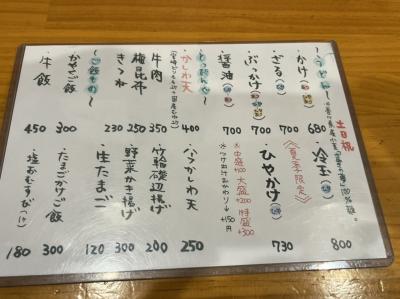 〜うどん〜
かけ 680
ざる 700
ぶっかけ 700
醤油 700
〜とっぴんぐ〜
かしわ天 400
牛肉 350
梅昆布 250
きつね 230
〜ご飯もの〜
かやくご飯 300
牛飯 450
土日祝
冷玉 800
《夏季限定》
ひやかけ 730
※中盛+100 大盛+200 特盛+300
※つけ汁おかわり→+150円
ハーフかしわ天 250
竹輪磯辺揚げ 200
野菜かき揚げ 300
生たまご 120
たまごかけご飯 300
塩おむすび(1ケ) 180